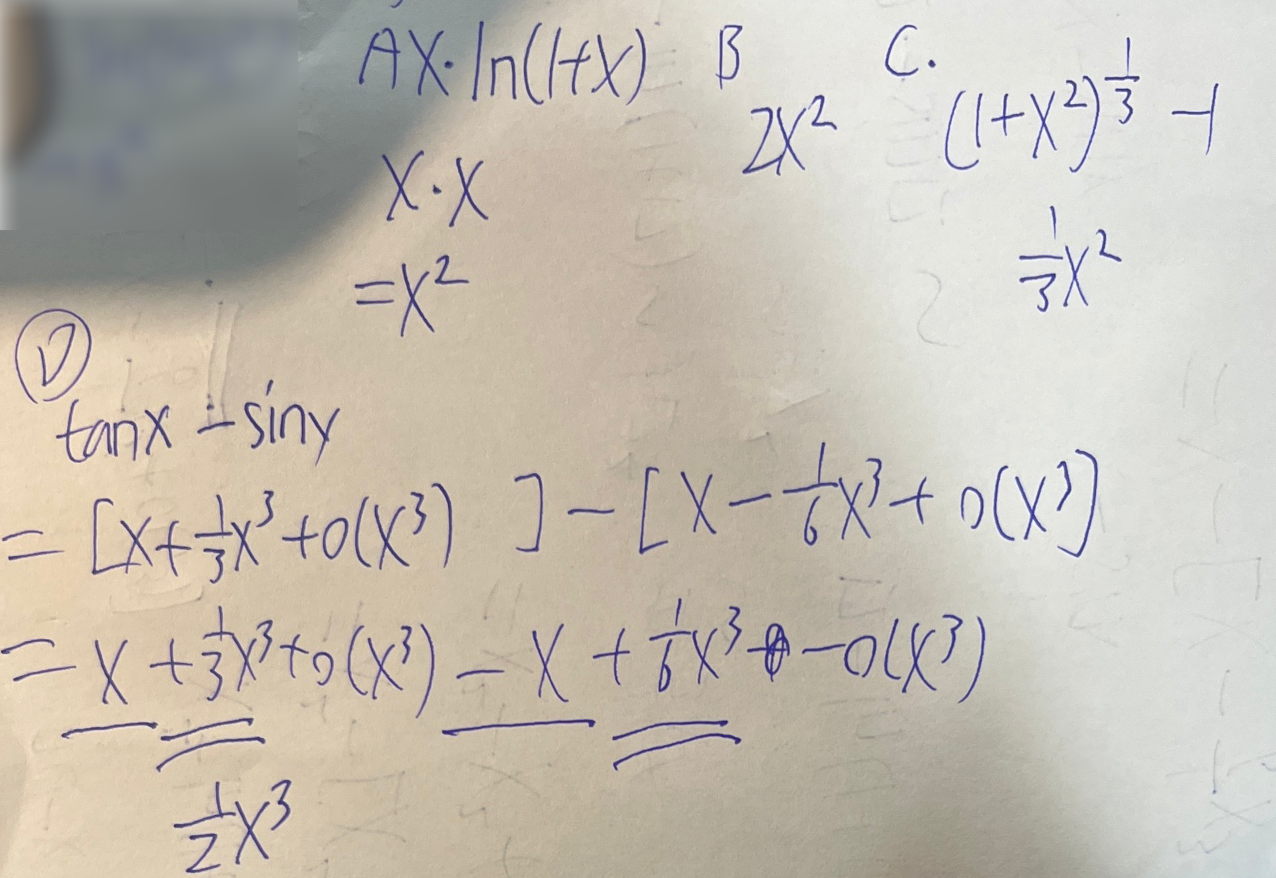 A X·ln(1+X)
X·X
=X²
B
2X²
C.
(1+X²)^{1/3} -1
1/3 X²
Ⓓ
tanX - siny
= [X+1/3X³+o(X³) ] - [X - 1/6X³ + o(X³)]
= X + 1/3X³+o(X³) - X + 1/6X³ - o(X³)
1/2X³